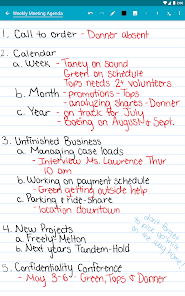 Weekly Meeting Agenda
1. Call to order - Donner absent
2. Calendar
a. Week - Taney on sound
Green on schedule
Tops needs 2+ volunteers
b. Month - promotions - Tops
- analyzing shares - Donner
c. Year - on track for July
- Boeing on August & Sept.
3. Unfinished Business
a. Managing case loads
- Interview Ms. Lawrence Thur
10 am
b. Working on payment schedule
- Green getting outside help
c. Parking & Ride-share
- location downtown
4. New Projects
a. Freely Melton
b. Next years Tandem-Hold
don't forget
to pick up milk
on the way home!
5. Confidentiality Conference
- May 3-6 - Green, Tops & Donner